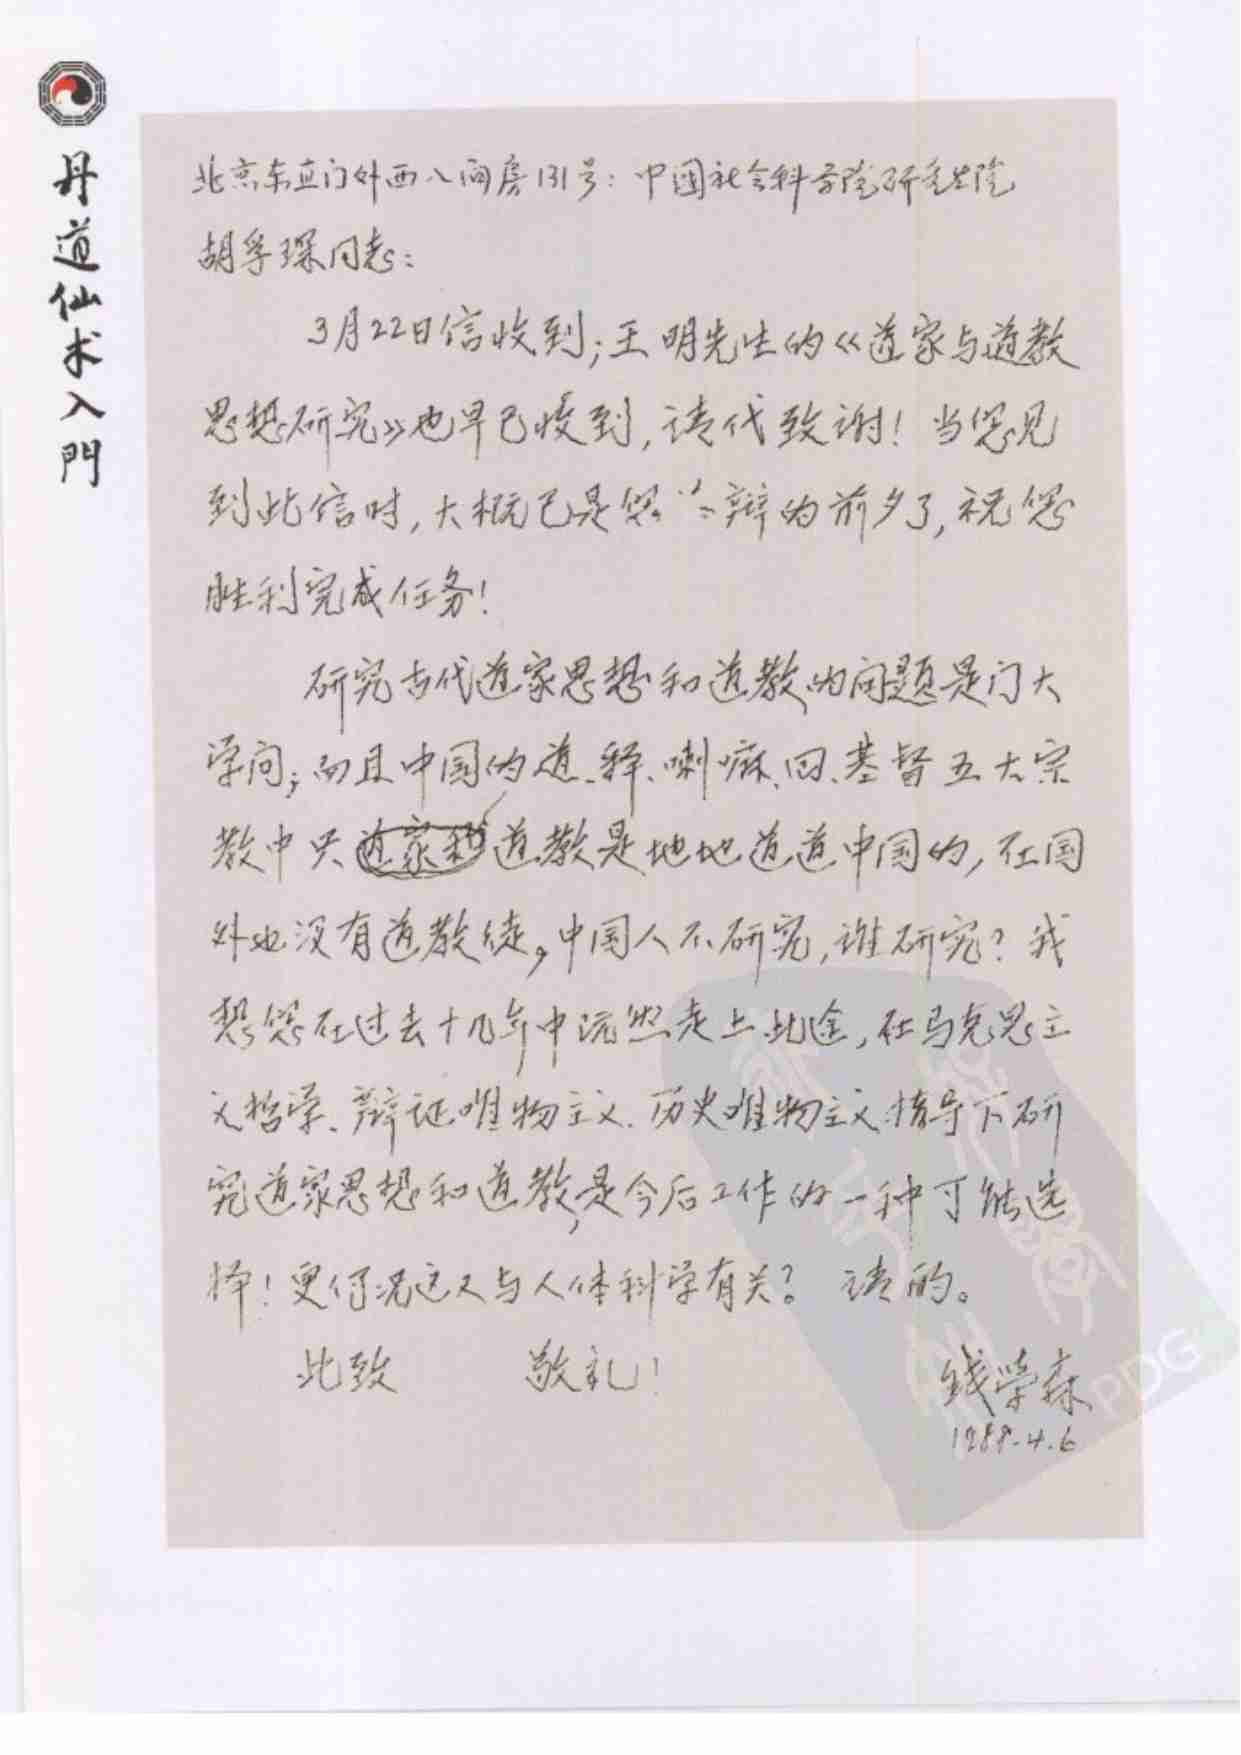 丹道仙术入門
北京东直门外西八间房131号：中國社会科学院研究生院
胡孚琛同志：
3月22日信收到；王明先生的《道家与道教
思想研究》也早已收到，请代致谢！当您见
到此信时，大概已是您答辩的前夕了，祝您
胜利完成任务！
研究古代道家思想和道教的问题是门大
学问；而且中国的道、释、喇嘛、回、基督五大宗
教中只道家和道教是地地道道中国的，在国
外也没有道教徒。中国人不研究，谁研究？我
想您在过去十几年中既然走上此途，在马克思主
义哲学、辩证唯物主义、历史唯物主义指导下研
究道家思想和道教，是今后工作的一种可能选
择！更何况这又与人体科学有关？ 请酌。
此致 敬礼！
钱学森
1988.4.6
PDG